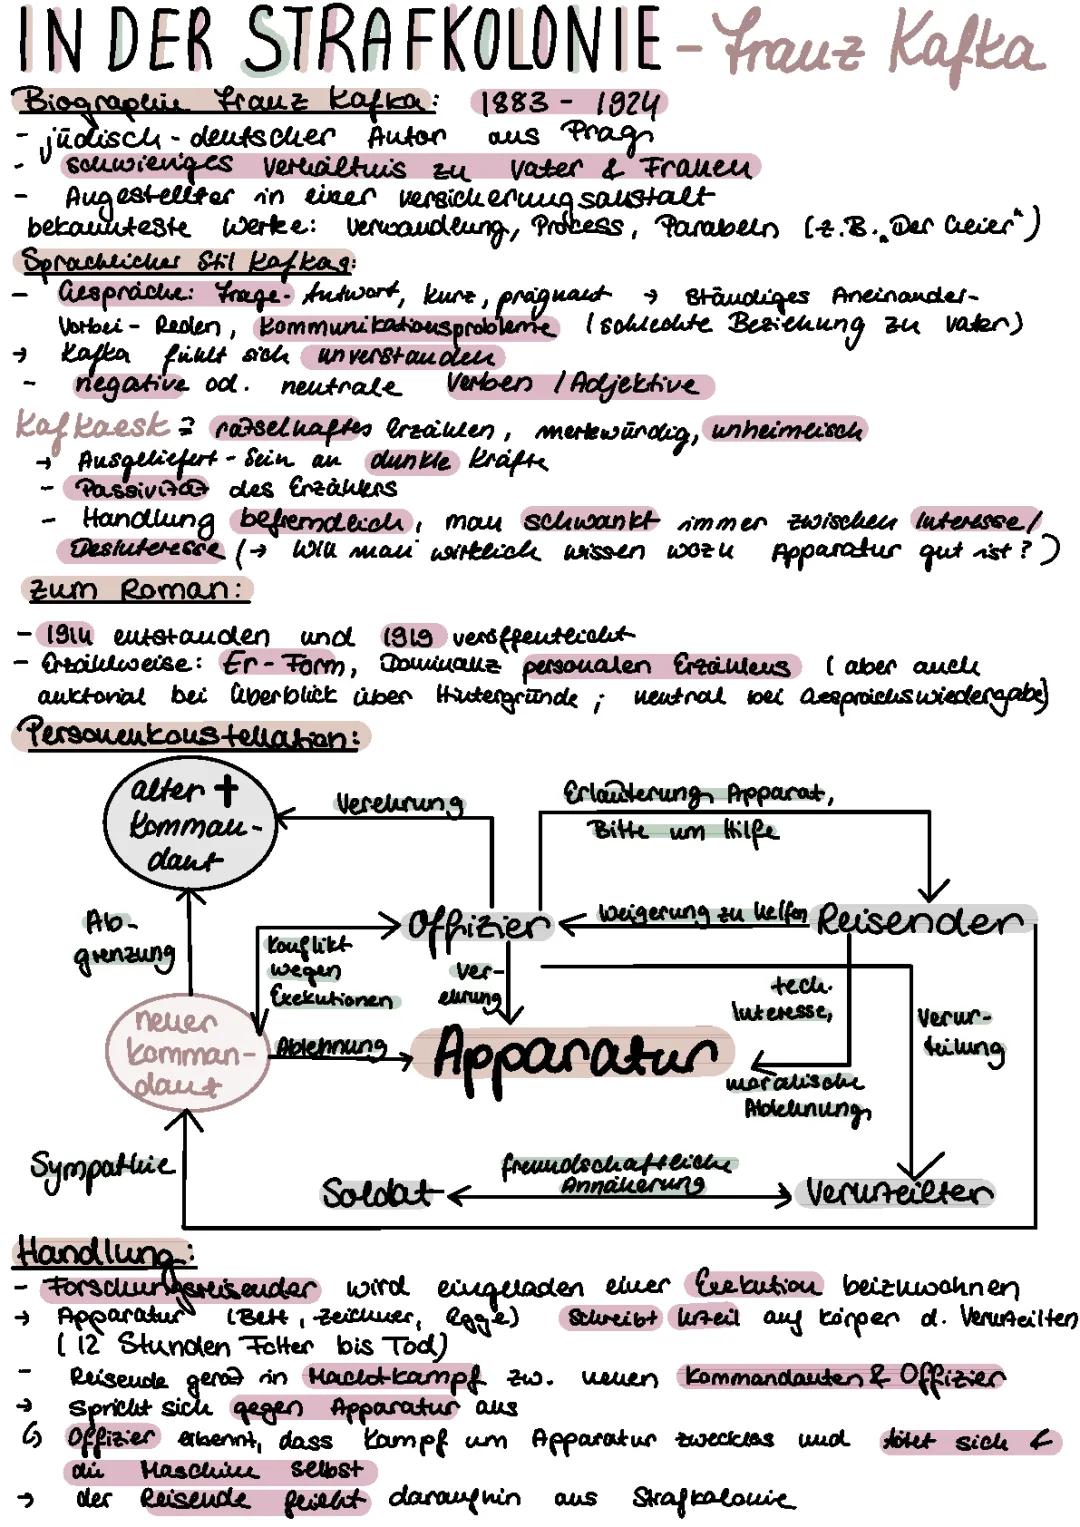 IN DER STRAFKOLONIE - Franz Kafka
Biographie Franz Kafka: 1883 - 1924
- jüdisch-deutscher Autor aus Prag
- schwieriges Verhältnis zu Vater & Frauen
- Angestellter in einer Versicherungsanstalt
bekannteste Werke: Verwandlung, Process, Parabeln (z.B. „Der Geier")
Sprachlicher Stil Kafkas:
- Gespräche: Frage-Antwort, kurz, prägnant → Ständiges Aneinander-
Vorbei-Reden, Kommunikationsprobleme (schlechte Beziehung zu Vater)
→ Kafka fühlt sich unverstanden
- negative od. neutrale Verben / Adjektive
Kafkaesk = rätselhaftes Erzählen, merkwürdig, unheimlisch
→ Ausgeliefert-Sein an dunkle Kräfte
- Passivität des Erzählers
- Handlung befremdlich, man schwankt immer zwischen Interesse/
Desinteresse (→ Will man wirklich wissen wozu Apparatur gut ist?)
Zum Roman:
- 1914 entstanden und 1919 veröffentlicht
- Erzählweise: Er-Form, Dominanz personalen Erzählens (aber auch
auktorial bei Überblick über Hintergründe; neutral bei Gesprächswiedergabe)
Personenkonstellation:
alter †
Komman-
dant
Verehrung
Erläuterung Apparat,
Bitte um Hilfe
Ab-
grenzung
Konflikt
wegen
Exekutionen
Offizier
Weigerung zu helfen
Reisender
Ver-
ehrung
tech.
Interesse,
moralische
Ablehnung
Verur-
teilung
neuer
Komman-
dant
Ablehnung
Apparatur
Sympathie
Soldat
freundschaftliche
Annäherung
Verurteilter
Handlung:
- Forschungsreisender wird eingeladen einer Exekution beizuwohnen
→ Apparatur (Bett, Zeichner, Egge) schreibt Urteil auf Körper d. Verurteilten
(12 Stunden Folter bis Tod)
- Reisende gerät in Machtkampf zw. neuen Kommandanten & Offizier
→ Spricht sich gegen Apparatur aus
↳ Offizier erkennt, dass Kampf um Apparatur zwecklos und tötet sich &
die Maschine selbst
→ der Reisende flieht daraufhin aus Strafkolonie